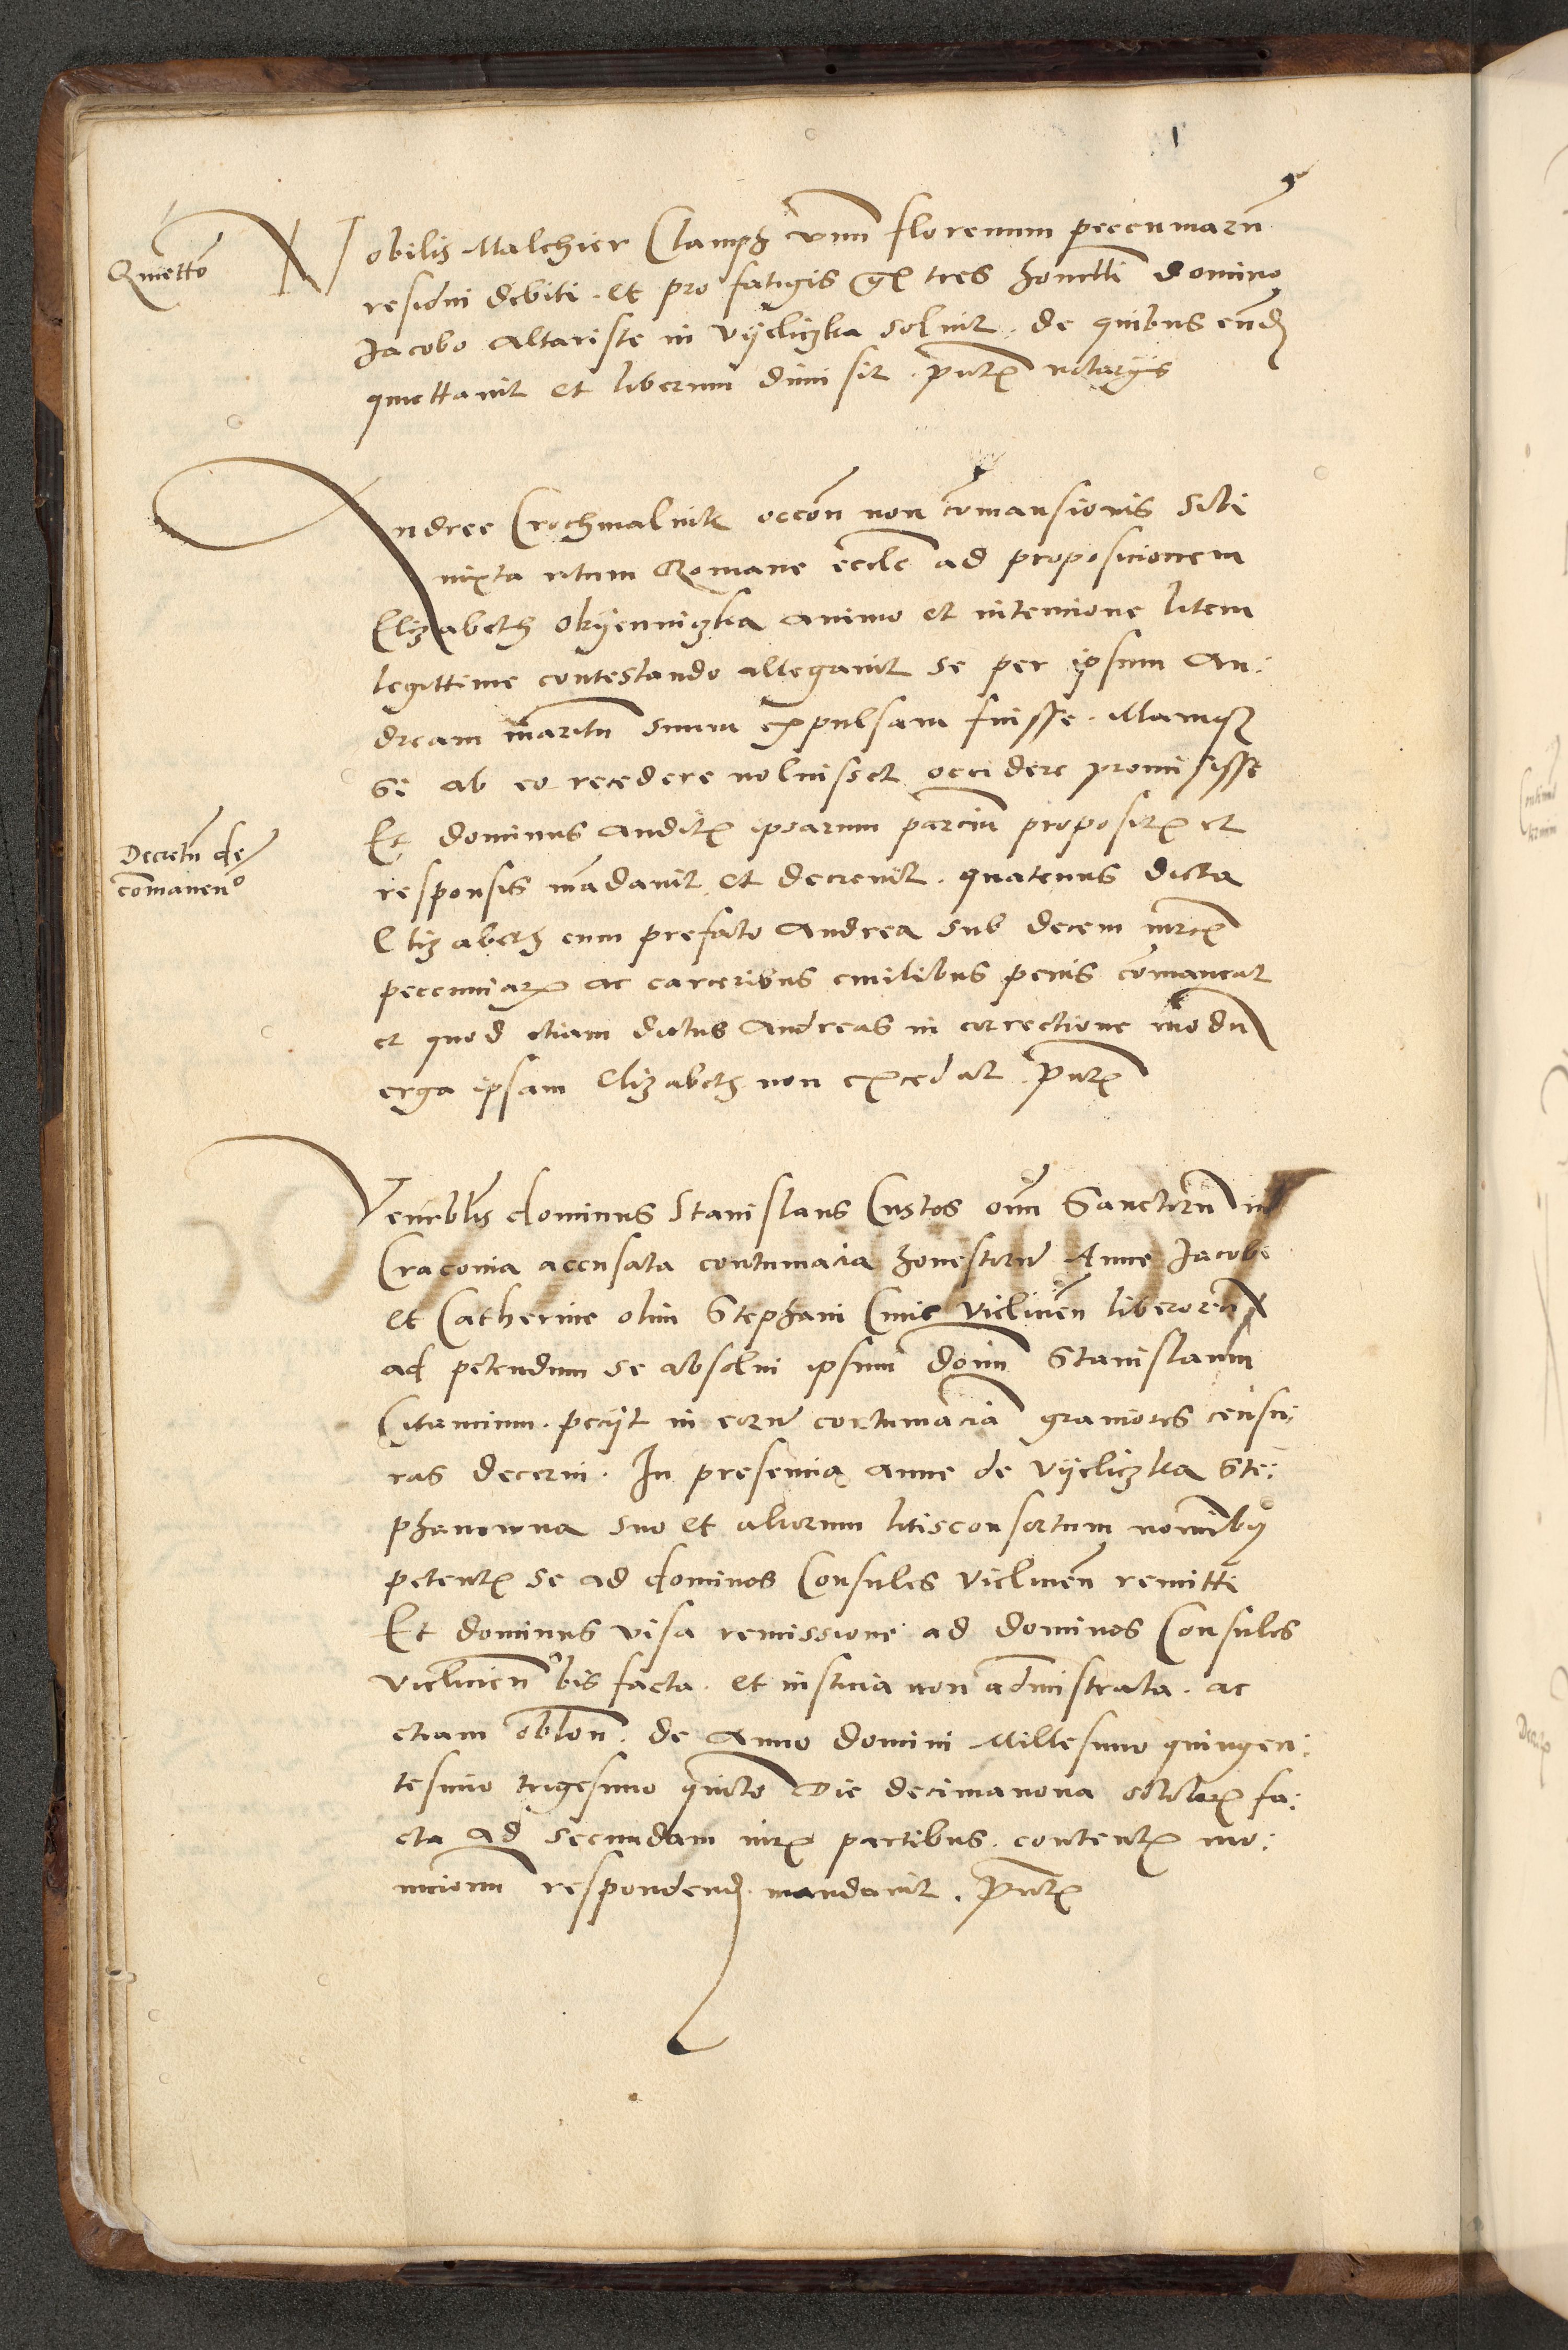 Quietto
Nobilis Malchier Clamph unũ florenum peccuniarũ
residui debiti et pro fatigis gr tres honorabili domino
Jacobo Altariste in Vyeliczka soluit. de quibus eund
quiettauit et liberum dimisit. pñtꝭ notariis
Andree Crochmalnik occõn non cõmansionis sibi
iuxta ritum Romane eccle ad proposicionem
Elizabeth Okyenniczka animo et intencione litem
legittime contestando allegauit se per ipsum An:
dream maritũ suum expulsam fuisse. Illamqꝫ
si ab eo recedere noluisset occidere promisisse
Decretũ de
cõmanenº
Et dominus auditꝭ ipsarum parciũ propositꝭ et
responsis mãdauit et decreuit. quatenus dicta
Elizabeth cum prefato Andrea sub decem mrcꝭ
peccuniarꝭ ac carceribus ciuilibus penis cõmaneat
et quod etiam dictus Andreas in correctione modũ
erga ipsam Elizabeth non excedat. pñtꝭ
Venerablis dominus Stanislaus Custos oĩm Sanctorũ in
Cracouia accusata contumacia honestorũ Anne Jacobi
et Catherine olim Stephani Cmie Vielicieñ liberorũ
ad petendum se absolui ipsum doñm Stanislaum
Citancium. peciit in eorũ contumaciã grauiores censu:
ras decerni. In presencia Anne de Vyeliczka Ste:
phanowna suo et aliorum litisconsortum nominibꝰ
petentꝭ se ad dominos Consules Vielicieñ remitti
Et dominus visa remissione ad dominos Consules
Vielicieñ bis facta. et iusticia non administrata. ac
etiam obloñ. de Anno domini Millesimo quingen:
tesimo trigesimo quinto Die decimanona octobrꝭ fa:
cta ad secundam intꝭ partibus. contentꝭ mo:
nicionũ respondend mandauit. pñtꝭ